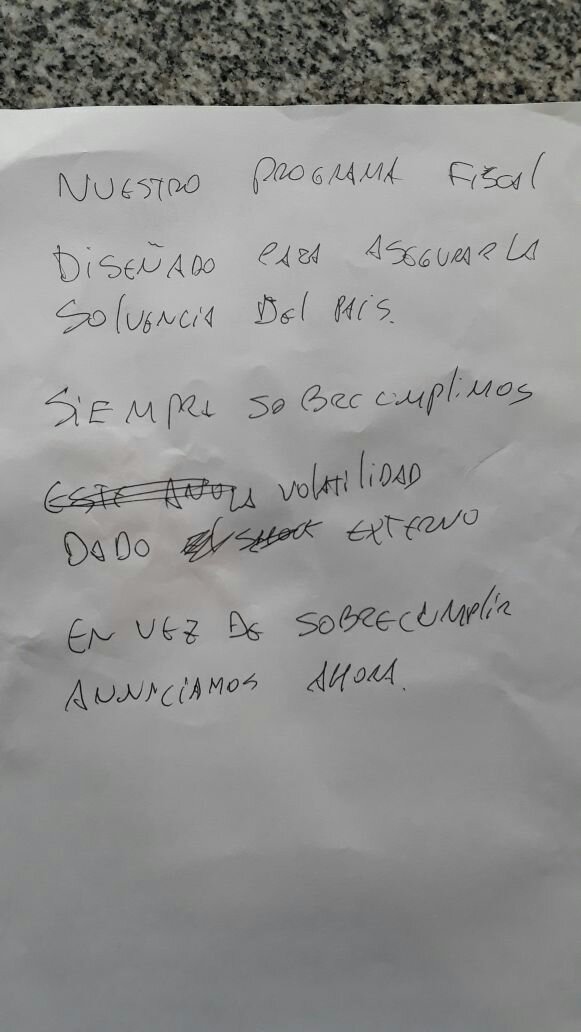 NUESTRO PROGRAMA FISCAL
DISEÑADO PARA ASEGURAR LA
SOLVENCIA DEL PAIS.
SIEMPRE SOBRECUMPLIMOS
ESTE AÑO LA VOLATILIDAD
DADO SHOCK EXTERNO
EN VEZ DE SOBRECUMPLIR
ANUNCIAMOS AHORA.